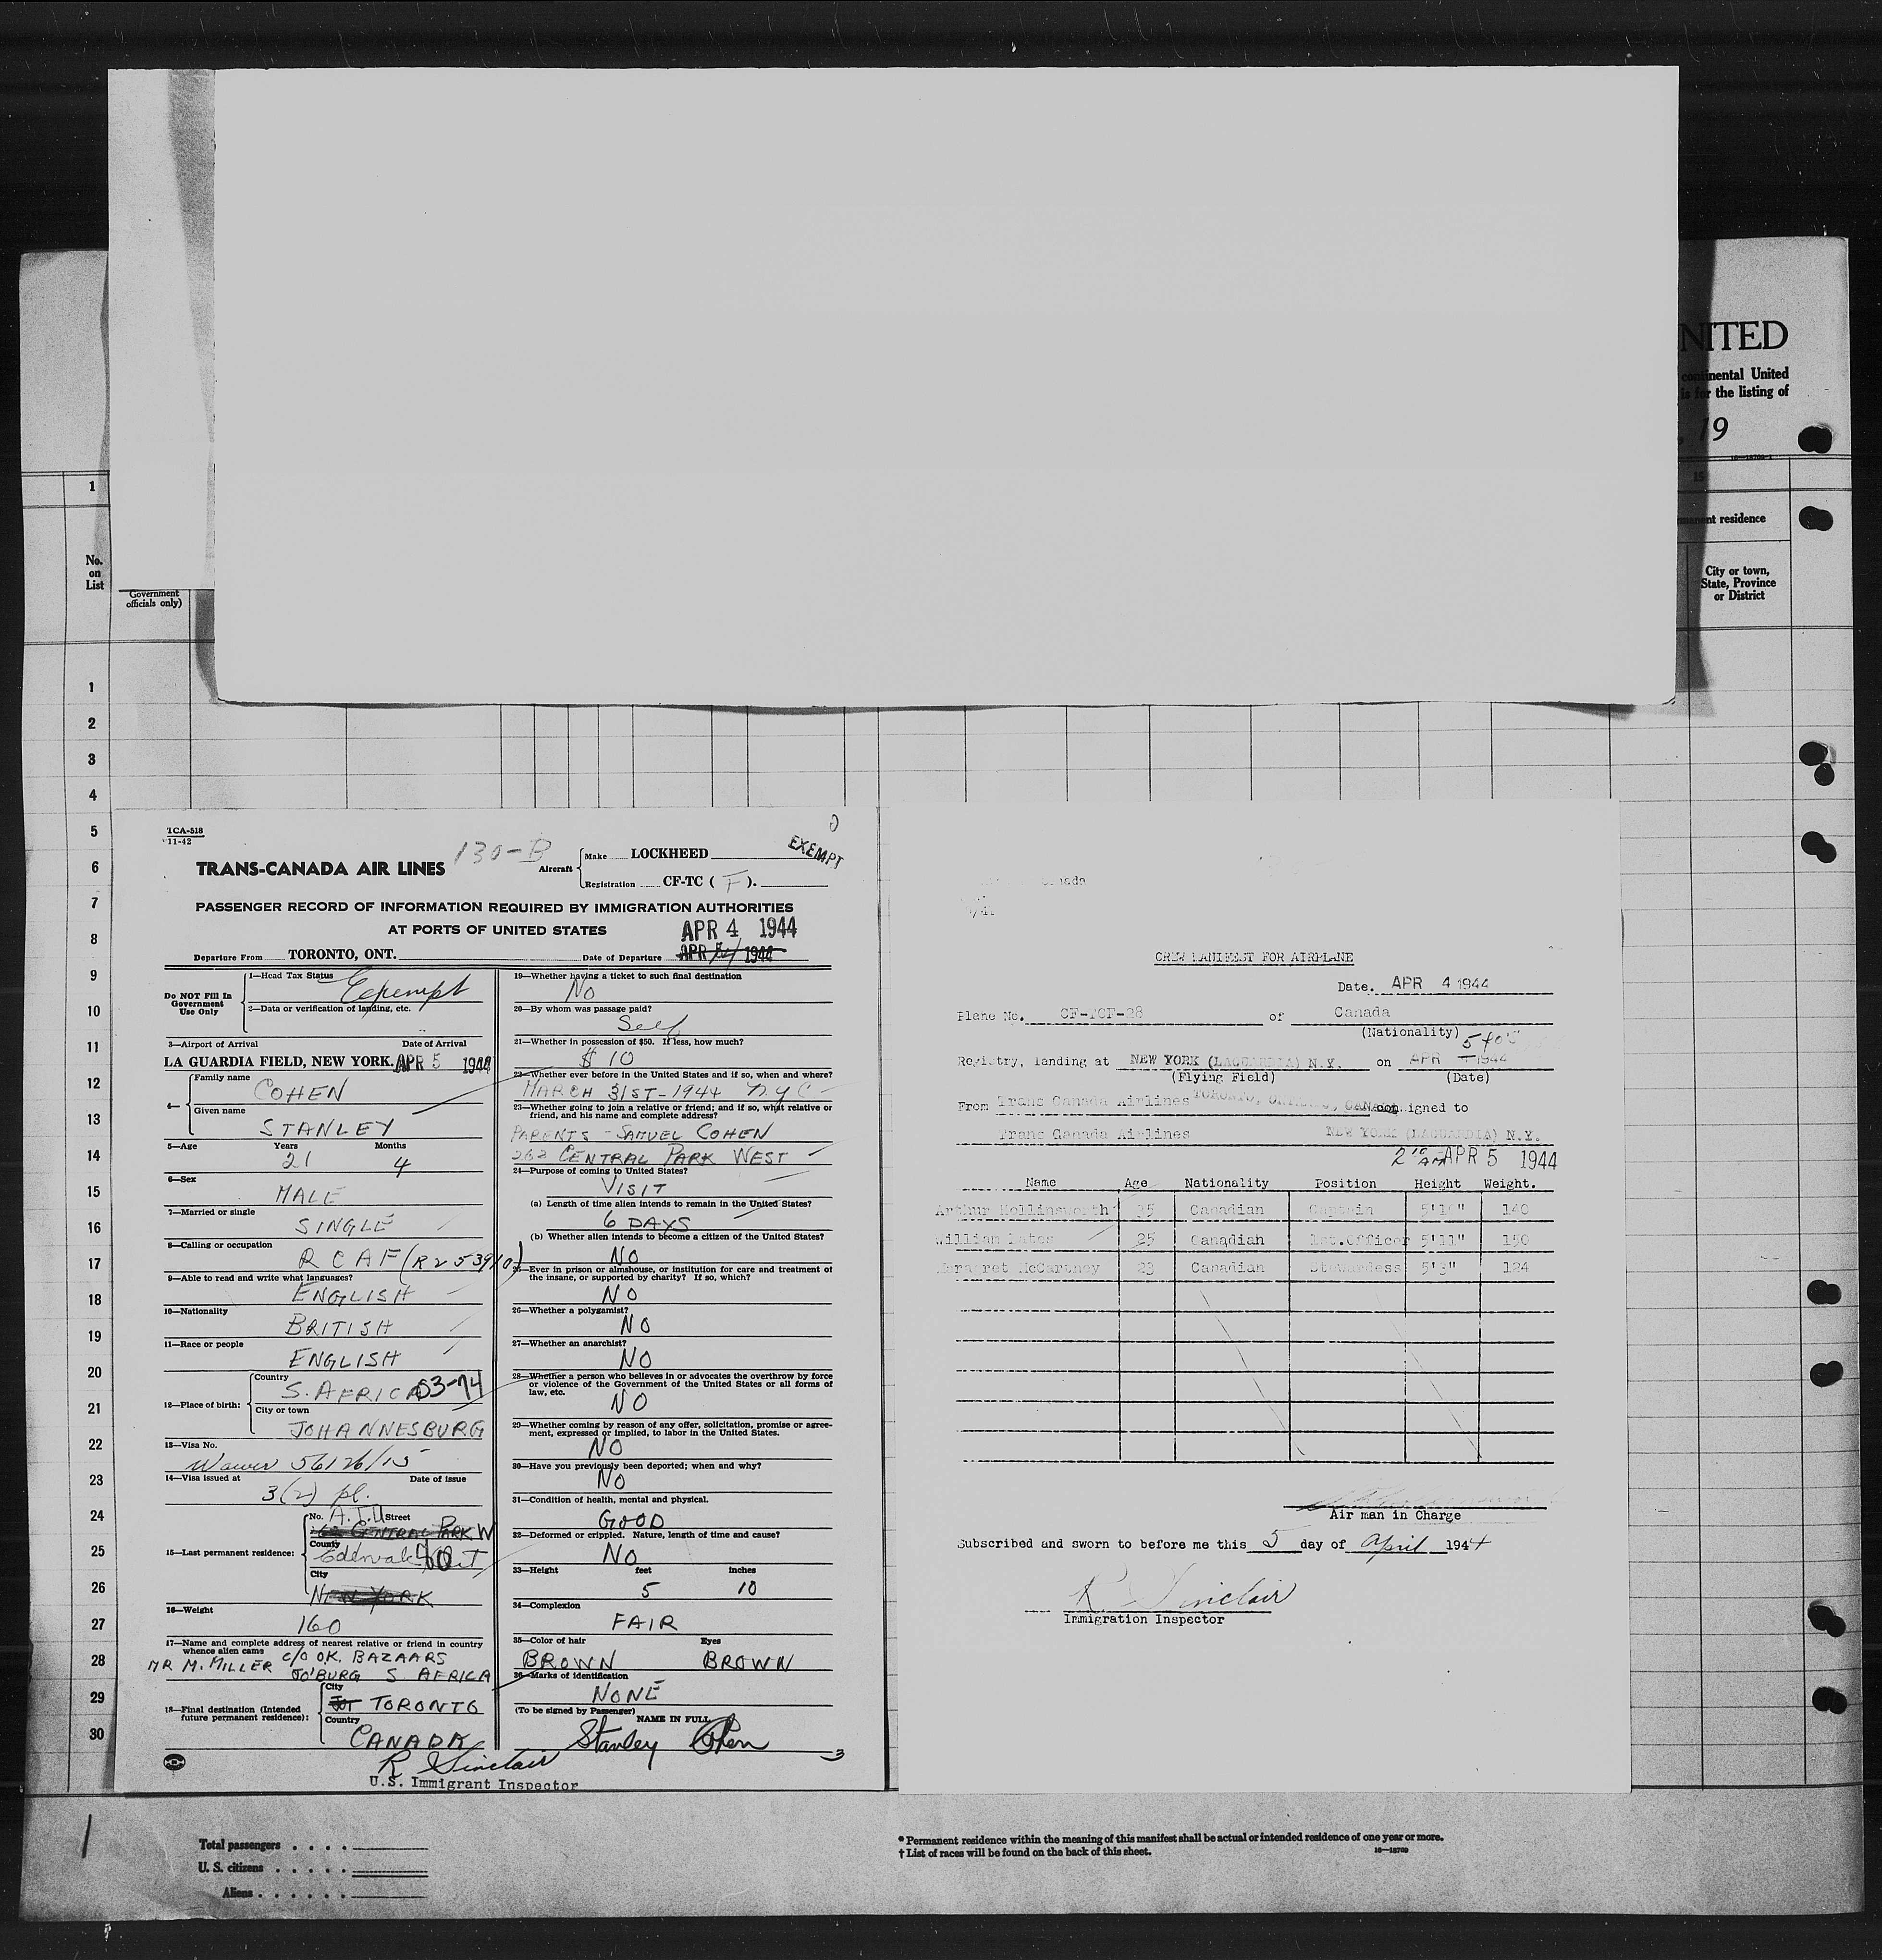 NITED
continental United
is for the listing of
, 19
16—18700-1
1
15
permanent residence
No.
on
List
Government
officials only)
City or town,
State, Province
or District
1
2
3
4
5
6
7
8
9
10
11
12
13
14
15
16
17
18
19
20
21
22
23
24
25
26
27
28
29
30
TCA-518
11-42
130-B
EXEMPT
TRANS-CANADA AIR LINES
Aircraft
Make LOCKHEED
Registration CF-TC ( F ).
PASSENGER RECORD OF INFORMATION REQUIRED BY IMMIGRATION AUTHORITIES
AT PORTS OF UNITED STATES
APR 4 1944
Departure From TORONTO, ONT. Date of Departure APR 1944
Do NOT Fill In
Government
Use Only
1—Head Tax Status Exempt
2—Data or verification of landing, etc.
3—Airport of Arrival Date of Arrival
LA GUARDIA FIELD, NEW YORK. APR 5 1944
4—
Family name
COHEN
Given name
STANLEY
5—Age Years Months
21 4
6—Sex
MALE
7—Married or single
SINGLE
8—Calling or occupation
RCAF (R253910)
9—Able to read and write what languages?
ENGLISH
10—Nationality
BRITISH
11—Race or people
ENGLISH
12—Place of birth:
Country
S. AFRICA 03-74
City or town
JOHANNESBURG
13—Visa No.
Waiver 56126/15
14—Visa issued at Date of issue
3(2) pl.
15—Last permanent residence:
No. Street
CENTRAL PARK W
County
City
NEW YORK
16—Weight
160
17—Name and complete address of nearest relative or friend in country
whence alien came C/O O.K. BAZAARS
MR M. MILLER JO'BURG S. AFRICA
18—Final destination (Intended
future permanent residence):
City
TORONTO
Country
CANADA
R Sinclair
U.S. Immigrant Inspector
19—Whether having a ticket to such final destination
No
20—By whom was passage paid?
Self
21—Whether in possession of $50. If less, how much?
$10
22—Whether ever before in the United States and if so, when and where?
MARCH 31ST-1944 NYC
23—Whether going to join a relative or friend; and if so, what relative or
friend, and his name and complete address?
PARENTS - SAMUEL COHEN
262 CENTRAL PARK WEST
24—Purpose of coming to United States?
VISIT
(a) Length of time alien intends to remain in the United States?
6 DAYS
(b) Whether alien intends to become a citizen of the United States?
NO
25—Ever in prison or almshouse, or institution for care and treatment of
the insane, or supported by charity? If so, which?
NO
26—Whether a polygamist?
NO
27—Whether an anarchist?
NO
28—Whether a person who believes in or advocates the overthrow by force
or violence of the Government of the United States or all forms of
law, etc.
NO
29—Whether coming by reason of any offer, solicitation, promise or agree-
ment, expressed or implied, to labor in the United States.
NO
30—Have you previously been deported; when and why?
NO
31—Condition of health, mental and physical.
GOOD
32—Deformed or crippled. Nature, length of time and cause?
NO
33—Height feet inches
5 10
34—Complexion
FAIR
35—Color of hair Eyes
BROWN BROWN
36—Marks of identification
NONE
(To be signed by Passenger)
NAME IN FULL
Stanley Cohen
3
CREW MANIFEST FOR AIRPLANE
Date. APR 4 1944
Plane No. CF-TCF-28 of Canada
(Nationality)
Registry, landing at NEW YORK (LAGUARDIA) N.Y. on APR 1944
(Flying Field) (Date)
From Trans Canada Airlines TORONTO, ONTARIO, CANADA consigned to
Trans Canada Airlines NEW YORK (LAGUARDIA) N.Y.
2 10 AM APR 5 1944
Name Age Nationality Position Height Weight.
Arthur Hollinsworth 35 Canadian Captain 5'10" 140
William 25 Canadian 1st.Officer 5'11" 150
Margaret McCartney 23 Canadian Stewardess 5'3" 124
Air man in Charge
Subscribed and sworn to before me this 5 day of April 1944
R Sinclair
Immigration Inspector
1
Total passengers
U. S. citizens
Aliens
* Permanent residence within the meaning of this manifest shall be actual or intended residence of one year or more.
† List of races will be found on the back of this sheet.
16—18700